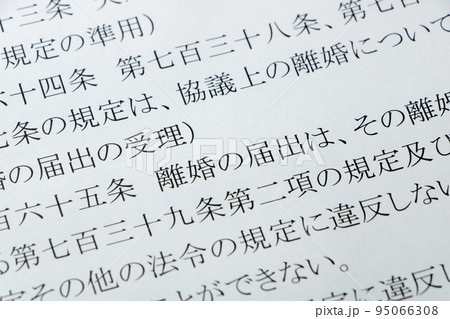 十三条
規定の準用）
六十四条　第七百三十八条、第七百
七条の規定は、協議上の離婚について
婚の届出の受理）
百六十五条　離婚の届出は、その離婚
る第七百三十九条第二項の規定及び
定その他の法令の規定に違反しない
ことができない。
規定に違反し
pixta.jp - 95066308